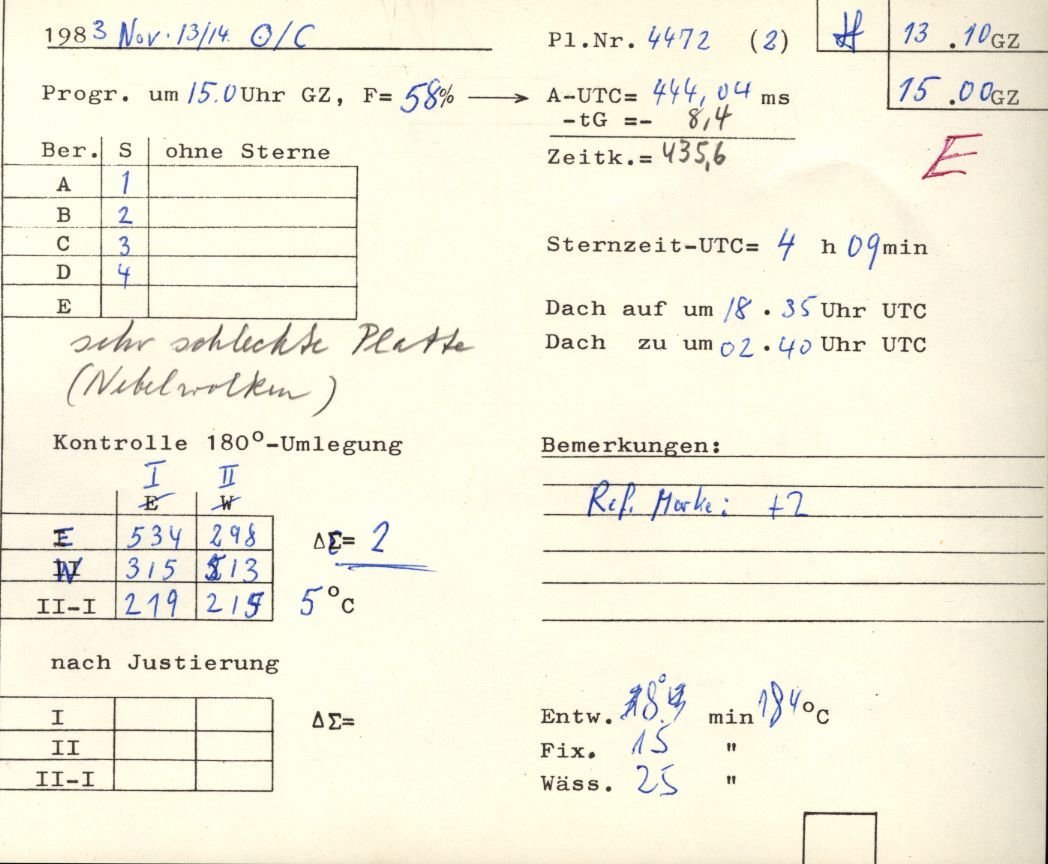 1983 Nov. 13/14. O/C
Pl.Nr. 4472 (2)
13 .10 GZ
15 .00 GZ
Progr. um 15.0 Uhr GZ, F= 58% → A-UTC= 444,04 ms
-tG =- 8,4
Zeitk.= 435,6
E
Ber. S ohne Sterne
A 1
B 2
C 3
D 4
E
Sternzeit-UTC= 4 h 09 min
Dach auf um 18 . 35 Uhr UTC
Dach zu um 02 . 40 Uhr UTC
sehr schlechte Platte
(Nebelwolken)
Kontrolle 180°-Umlegung
I II
E W
E 534 298
W 315 513
II-I 219 215
ΔΣ= 2
5 °C
Bemerkungen:
Ref. Marke: +2
nach Justierung
I
II
II-I
ΔΣ=
Entw. min 184 °C
Fix. 15 "
Wäss. 25 "